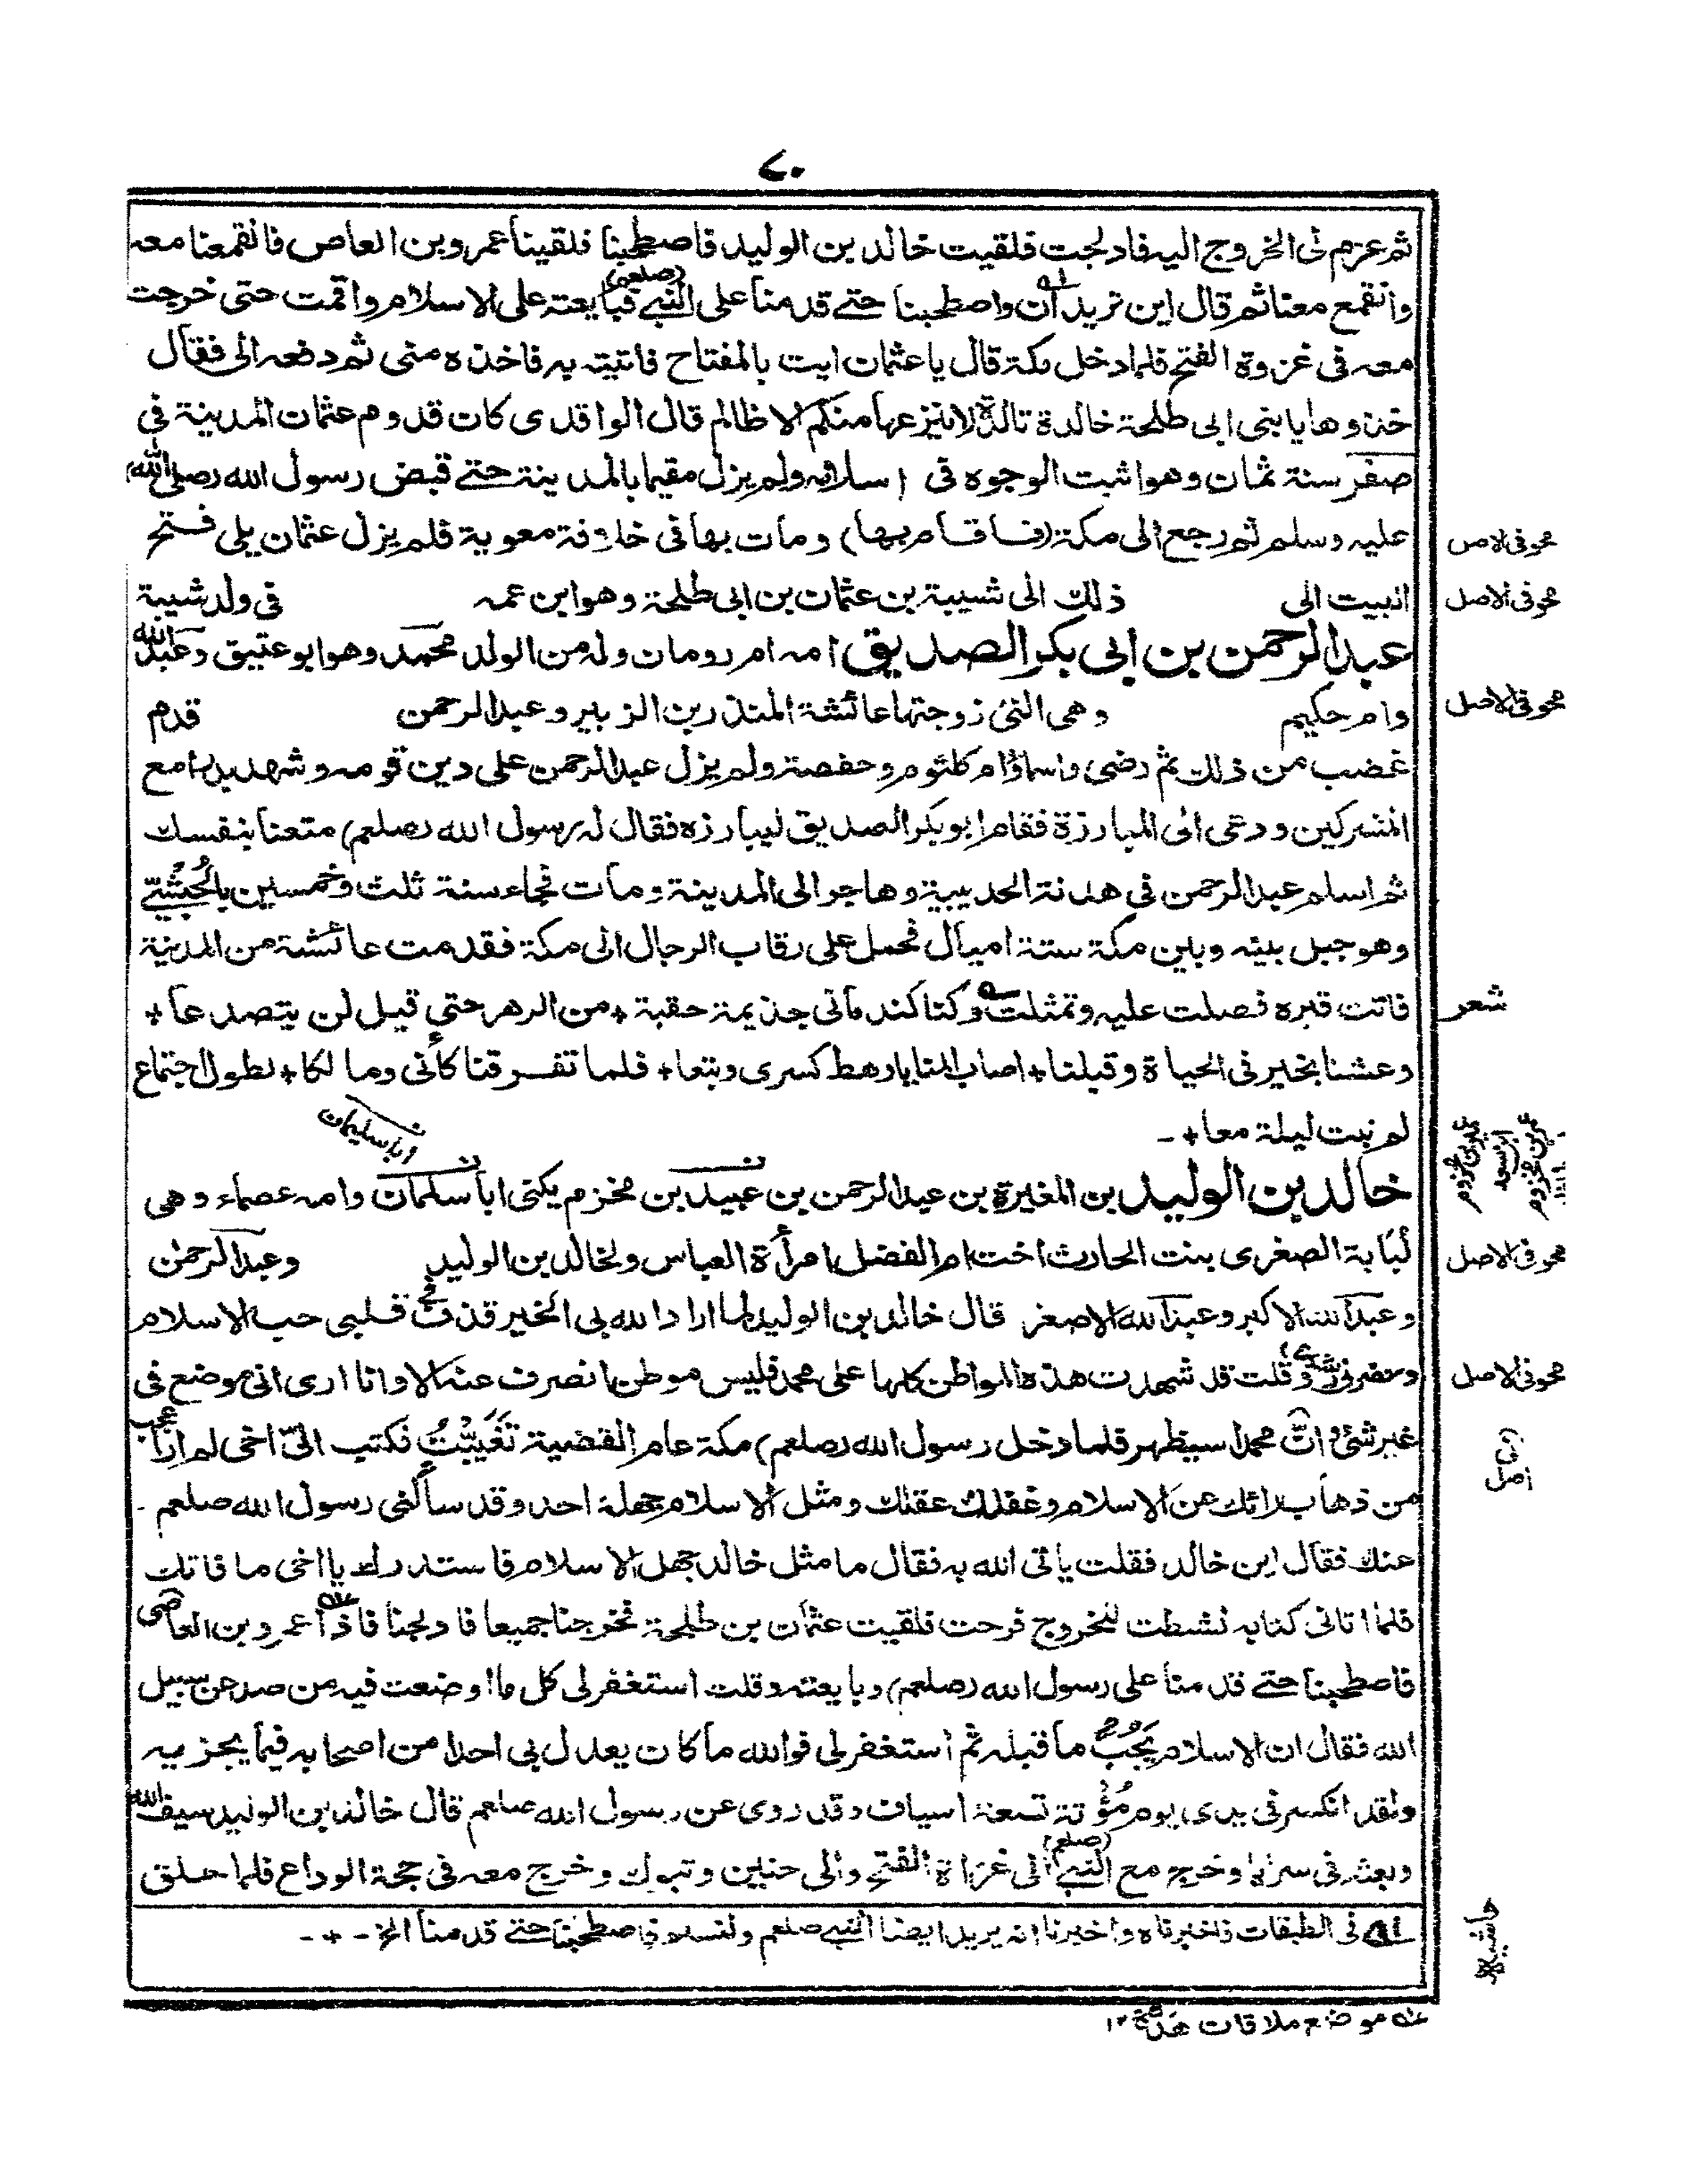 ٧٠
ثم عزم لى الخروج اليه فادلجت فلقيت خالد بن الوليد فاصطحبنا فلقينا عمرو بن العاص فانقمعنا معه
وانقمع معنا ثم قال اين تريدان واصطحبنا حتے قدمنا على النبے (صلعم) فبايعته على الاسلام واقمت حتى خرجت
معه فى غزوة الفتح فلما دخل مكة قال يا عثمان ايت بالمفتاح فاتيته به فاخذه منى ثم دفعه الى فقال
خذوها يا بنى ابى طلحة خالدة تالدة لا ينزعها منكم الا ظالم قال الواقدى كان قدوم عثمان المدينة فى
صفر سنة ثمان وهو اثبت الوجوه فى اسلامه ولم يزل مقيما بالمدينة حتے قبض رسول الله (صلى الله
عليه وسلم ثم رجع الى مكة (فاقام بها) ومات بها فى خلافة معوية فلم يزل عثمان يلى فتح
محو فى الاصل
البيت الى ذلك الى شيبة بن عثمان بن ابى طلحة وهو ابن عمه فى ولد شيبة
محو فى الاصل
عبد الرحمن بن ابى بكر الصديق امه ام رومان وله من الولد محمد وهو ابو عتيق وعبد الله
وام حكيم وهى التى زوجتها عائشة المنذر بن الزبير وعبد الرحمن قدم
محو فى الاصل
غضب من ذلك ثم رضى واسماؤام كلثوم وحفصة ولم يزل عبد الرحمن على دين قومه وشهد بدرا مع
المشركين ودعى الى المبارزة فقام ابو بكر الصديق ليبارزه فقال له رسول الله (صلعم) متعنا بنفسك
ثم اسلم عبد الرحمن فى هدنة الحديبية وهاجر الى المدينة ومات فجاء سنة ثلث وخمسين بالحُبْشُىّ
وهو جبل بينه وبين مكة ستة اميال فحمل على رقاب الرجال الى مكة فقدمت عائشة من المدينة
فاتت قبره فصلت عليه وتمثلت وكنا كندمانى جذيمة حقبة + من الدهر حتى قيل لن يتصدعا +
شعر
وعشنا بخير فى الحياة وقبلنا + اصاب المنايا رهط كسرى وتبعا + فلما تفرقنا كأنى ومالكا + لطول اجتماع
لم نبت ليلة معا + -
خالد بن الوليد بن المغيرة بن عبد الرحمن بن عبيد بن مخزم يكنى ابا سلمان وامه عصماء وهى
ابا سليمان
لُبَابة الصغرى بنت الحارث اخت ام الفضل امرأة العباس ولخالد بن الوليد وعبد الرحمن
محو فى الاصل
وعبد الله الاكبر وعبد الله الاصغر قال خالد بن الوليد لما اراد الله بى الخير قذف فى قلبى حب الاسلام
وحضرنى رشدى وقلت قد شهدت هذه المواطن كلها على محمد فليس موطن انصرف عنه الا وانا ارى انى موضع فى
محو فى الاصل
غير شئ وانّ محمدا سيظهر فلما دخل رسول الله (صلعم) مكة عام القضية تَغَيَّبْتُ فكتب الىّ اخى لم ار اعجب
من ذهاب رائك عن الاسلام وعقلك عقلك ومثل الاسلام جهله احد وقد سألنى رسول الله صلعم -
عنك فقال اين خالد فقلت ياتى الله به فقال ما مثل خالد جهل الاسلام فاستدرك يا اخى ما فاتك
فلما اتانى كتابه نشطت للخروج فرحت فلقيت عثمان بن طلحة فخرجنا جميعا فادلجنا فاذا عمرو بن العاصى
فاصطحبنا حتے قدمنا على رسول الله (صلعم) وبايعته وقلت استغفر لى كل ما اوضعت فيه من صد عن سبيل
الله فقال ان الاسلام يَجُبّ ما قبله ثم استغفر لى فوالله ما كان يعدل بى احدا من اصحابه فيما يحزبه
ولقد انكسر فى يدى يوم مُؤْتة تسعة اسياف وقد روى عن رسول الله صلعم قال خالد بن الوليد سيف الله
وبعثه فى سرايا وخرج مع النبے (صلعم) الى غزاة الفتح والى حنين وتبوك وخرج معه فى حجة الوداع فلما حلق
حاشيه
له فى الطبقات فاخبرناه واخبرنا انه يريد ايضا النبے صلعم ولنسلم فاصطحبنا حتے قدمنا الخ - + -
عه موضع ملاقات هَدّة ١٢